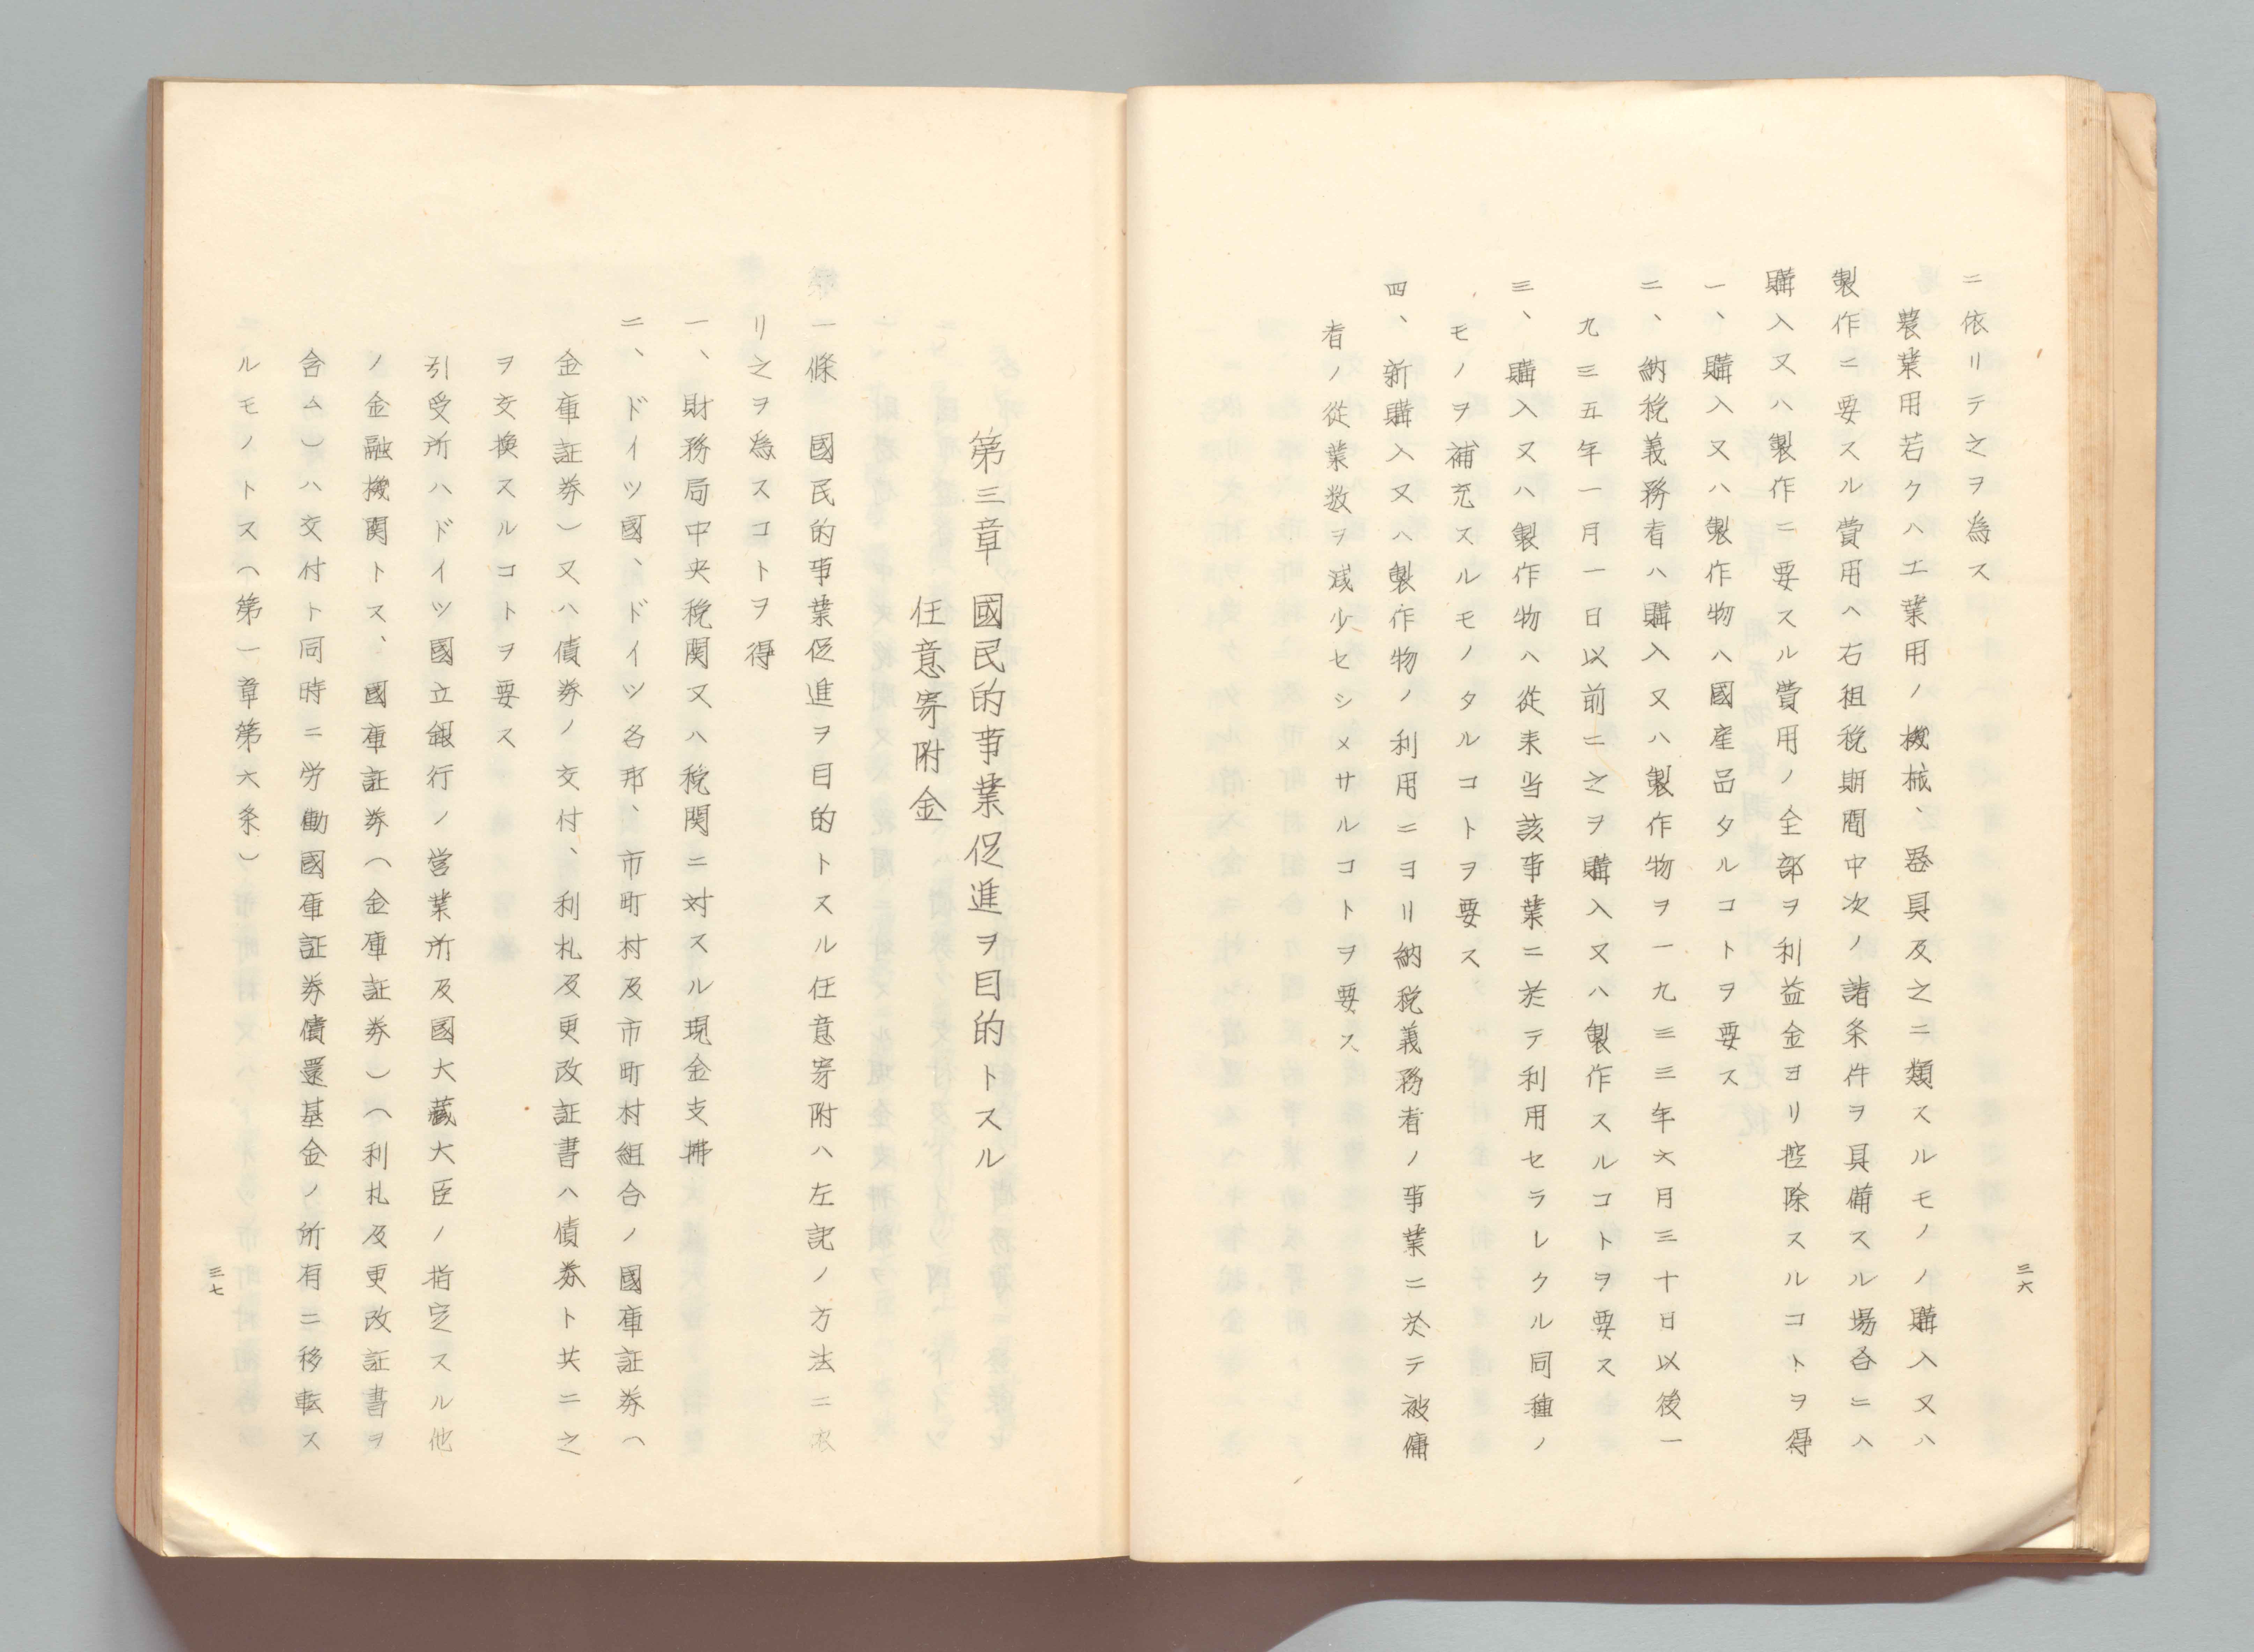 ニ依リテ之ヲ為ス
農業用若クハ工業用ノ機械、器具及之ニ類スルモノノ購入又ハ
製作ニ要スル費用ヘ右租税期間中次ノ諸条件ヲ具備スル場合ニハ
購入又ハ製作ニ要スル費用ノ全部ヲ利益金ヨリ控除スルコトヲ得
一、購入又ハ製作物ハ國産品タルコトヲ要ス
二、納税義務者ハ購入又ハ製作物ヲ一九三三年六月三十日以後一
九三五年一月一日以前ニ之ヲ購入又ハ製作スルコトヲ要ス
三、購入又ハ製作物ヘ従来当該事業ニ於テ利用セラレクル同種ノ
モノヲ補充スルモノタルコトヲ要ス
四、新購入又ハ製作物ノ利用ニヨリ納税義務者ノ事業ニ於テ被傭
者ノ従業数ヲ減少セシメサルコトヲ要ス
三六
第三章 國民的事業促進ヲ目的トスル
任意寄附金
一條 國民的事業促進ヲ目的トスル任意寄附ハ左記ノ方法ニ依
リ之ヲ為スコトヲ得
一、財務局中央税関又ハ税関ニ対スル現金支拂
二、ドイツ國、ドイツ各邦、市町村及市町村組合ノ國庫証券(
金庫証券)又ハ債券ノ交付、利札及更改証書ハ債券ト共ニ之
ヲ交換スルコトヲ要ス
引受所ハドイツ國立銀行ノ営業所及國大藏大臣ノ指定スル他
ノ金融機関トス、國庫証券(金庫証券)(利札及更改証書ヲ
含ム)ハ交付ト同時ニ労働國庫証券償還基金ノ所有ニ移転ス
ルモノトス(第一章第六条)
三七